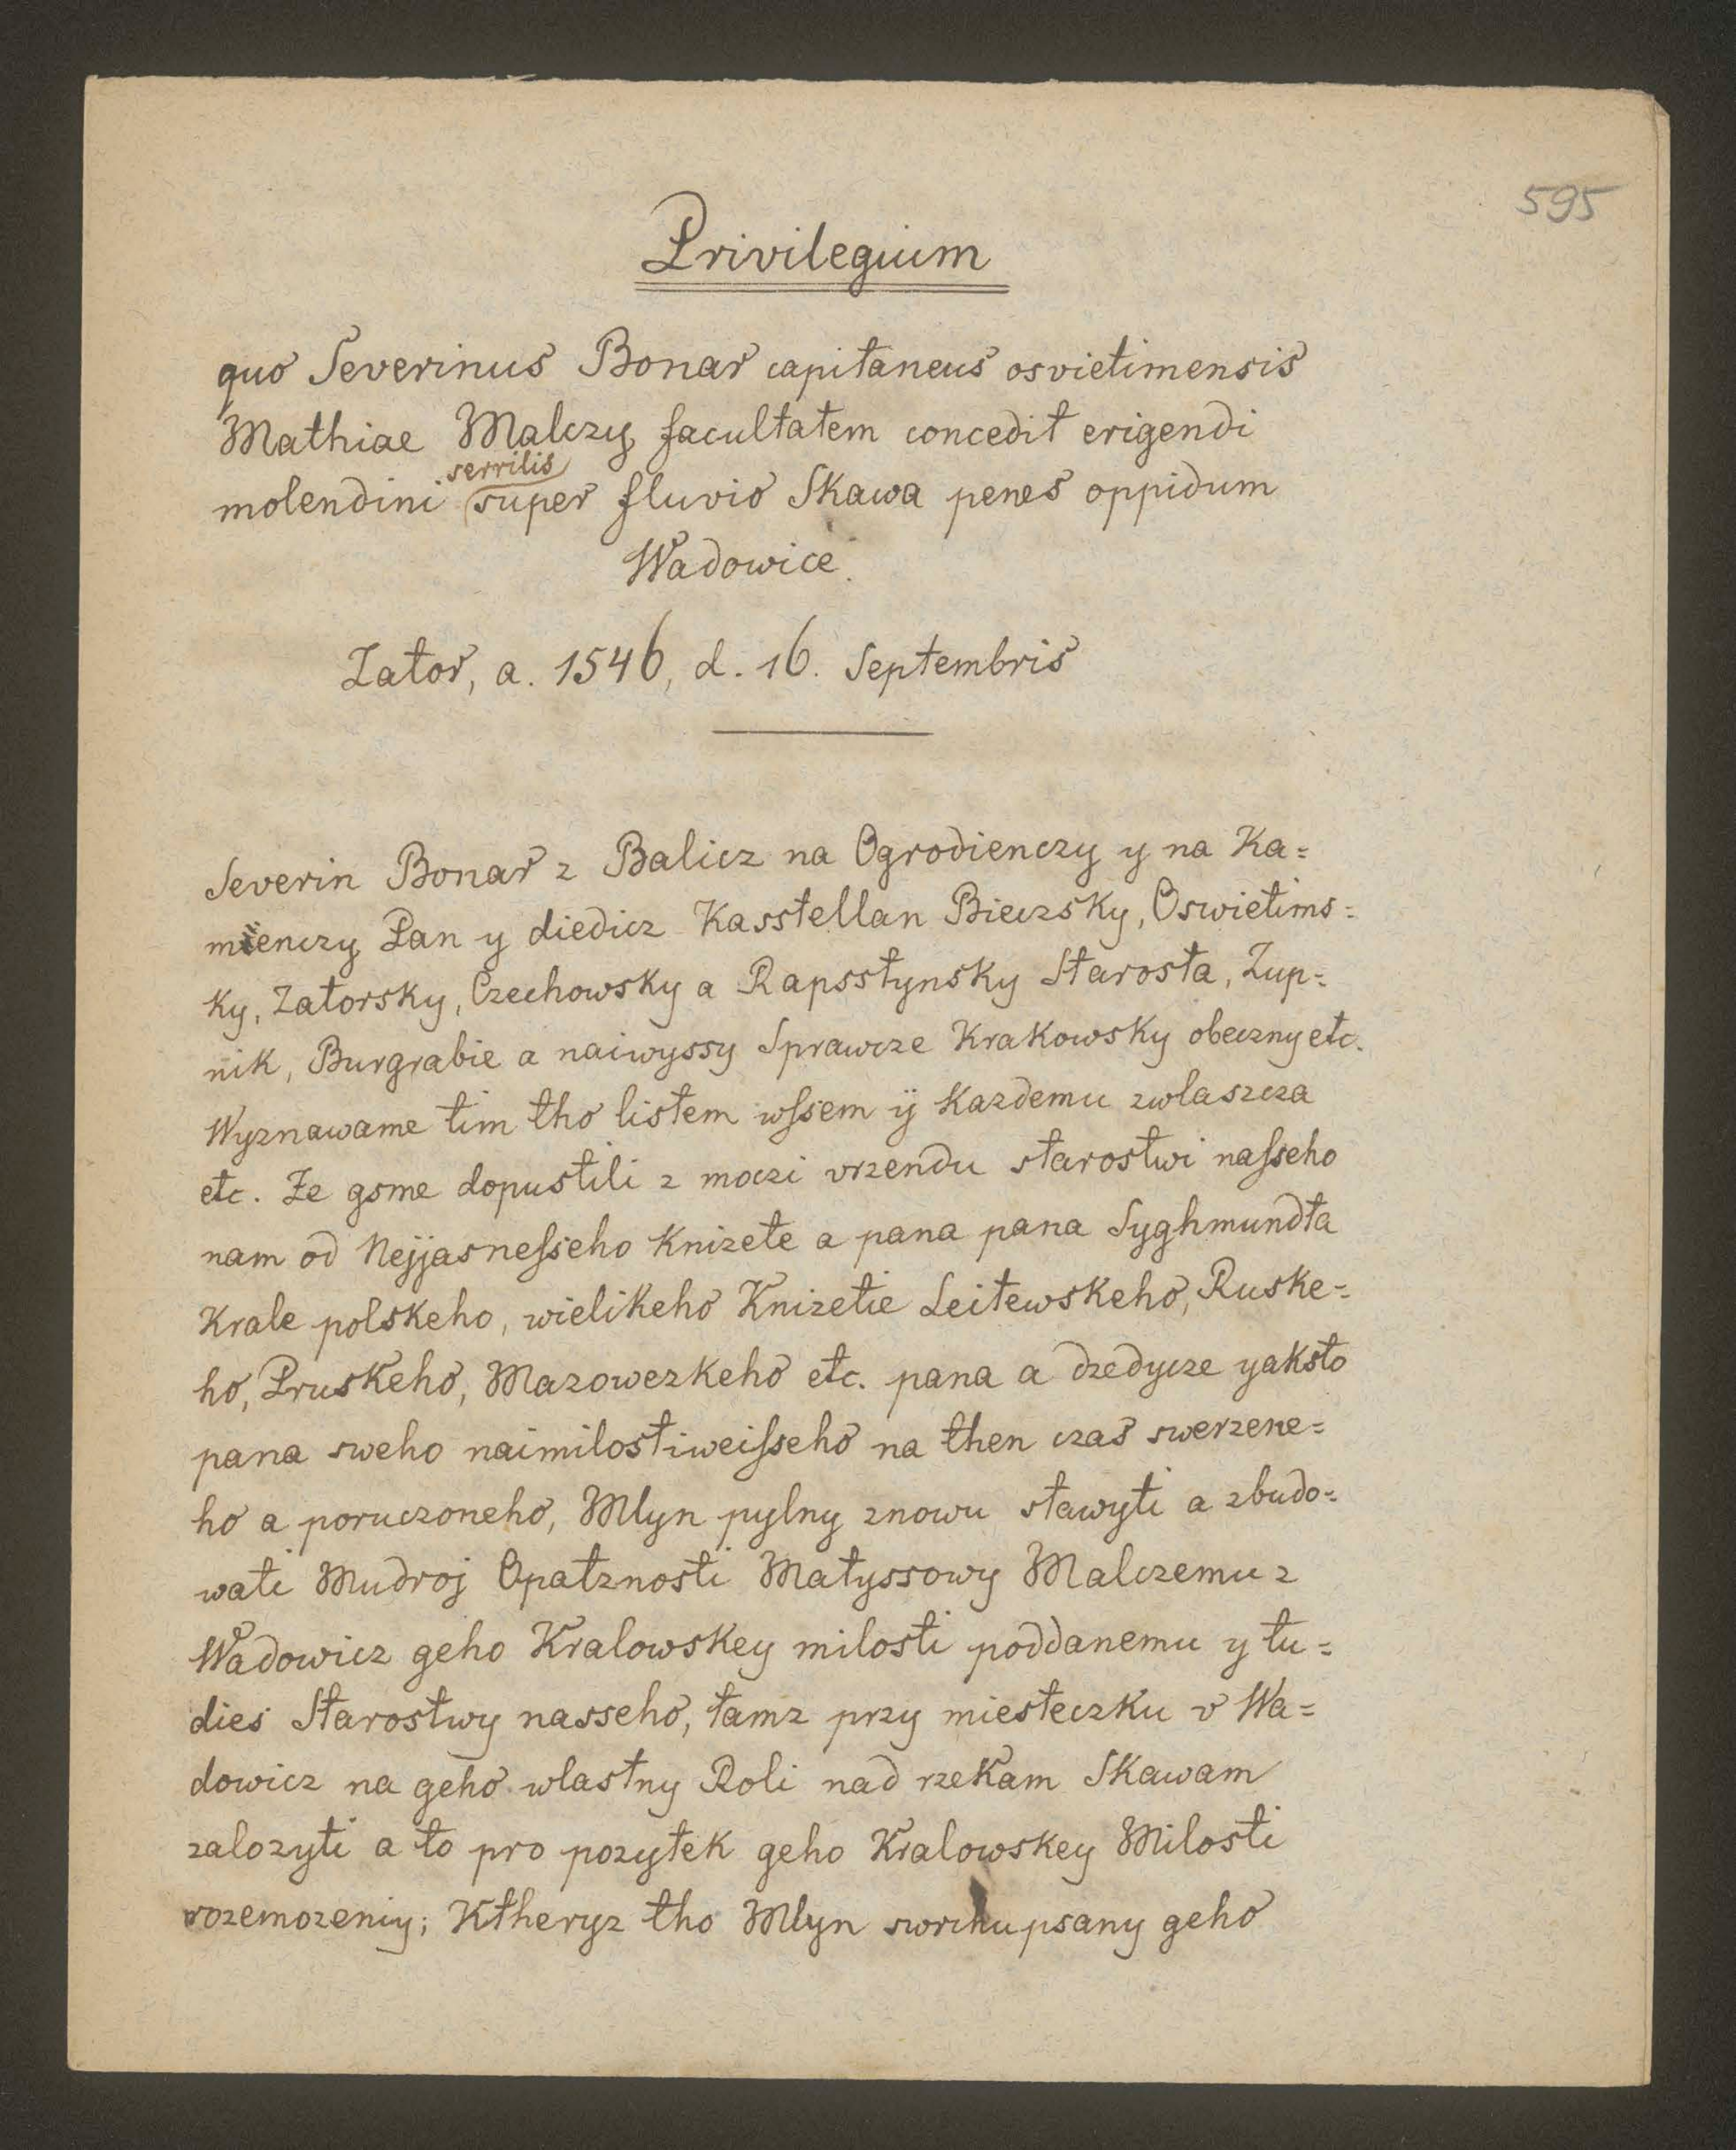 595
Privilegium
quo Severinus Bonar capitaneus osvietimensis
Mathiae Malczy facultatem concedit erigendi
serrilis
molendini super fluvio Skawa penes oppidum
Wadowice.
Zator, a. 1546, d. 16. Septembris
Severin Bonar z Balicz na Ogrodienczy y na Ka=
mienczy Pan y diedicz Kasstellan Bieczsky, Oswietims=
ky, Zatorsky, Czechowsky a Rapsstynsky Starosta, Zup=
nik, Burgrabie a naiwyssy Sprawcze Krakowsky obeczny etc.
Wyznawame tim tho listem wſsem ÿ Kazdemu zwlaszcza
etc. Ze gsme dopustili z moczi vrzendu starostwi naſseho
nam od Nejjasneſseho Knizete a pana pana Syghmundta
Krale polskeho, wielikeho Knizetie Leitewskeho, Ruske=
ho, Pruskeho, Mazowezkeho etc. pana a dzedycze yaksto
pana sweho naimilostiweiſseho na then czas swerzene=
ho a poruczoneho, Mlyn pylny znowu stawyti a zbudo=
wati Mudroj Opatznosti Matyssowy Malczemu z
Wadowicz geho Kralowskey milosti poddanemu y tu=
dies Starostwy nasseho, tamz przy miesteczku v Wa=
dowicz na geho wlastny Roli nad rzekam Skawam
zalozyti a to pro pozytek geho Kralowskey Milosti
rozemozeniy; Ktheryz tho Mlyn swrchupsany geho